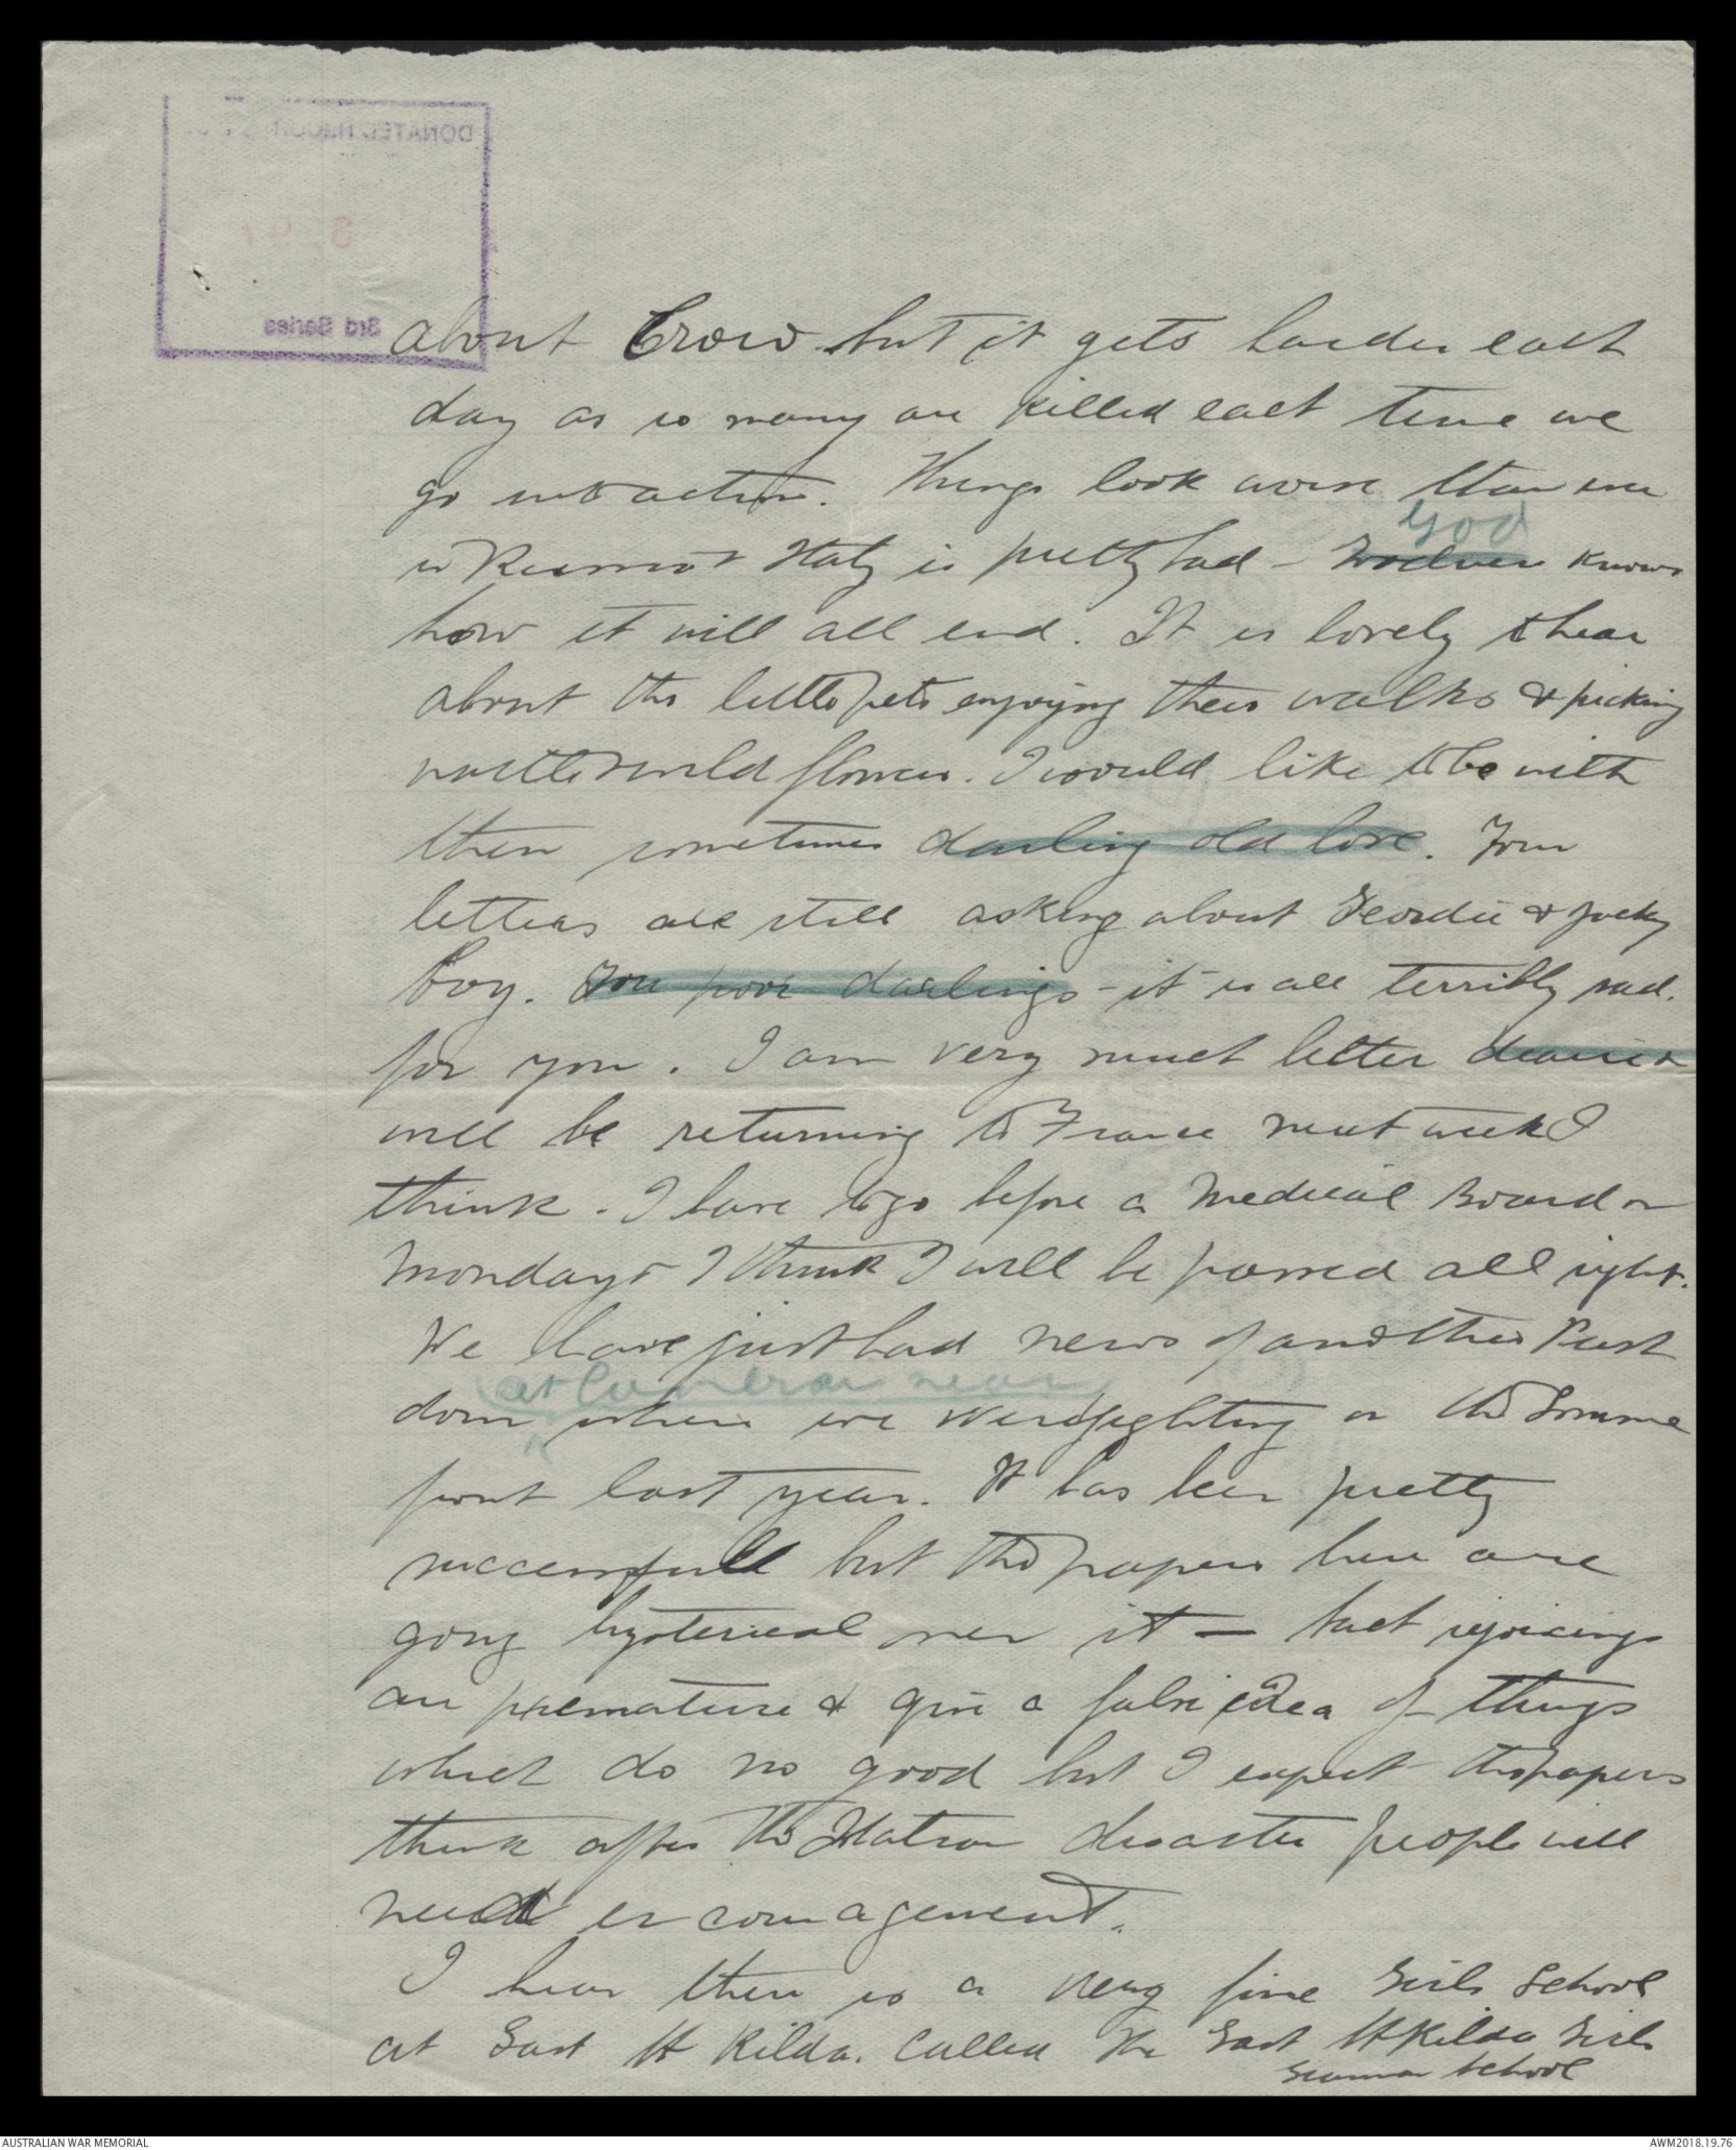 DONATED RECORDS LIST
3rd Series
about Crow but it gets harder each
day as so many are killed each time we
go into action. Things look worse than ever
in Russia & Italy is pretty bad – God knows
how it will all end. It is lovely to hear
about the little pets enjoying their walks & picking
wattle & wild flowers. I would like to be with
them sometimes darling old love. Your
letters are still asking about Geordie & Jocky
boy. You poor darlings – it is all terribly sad.
for you. I am very much better dearie &
will be returning to France next week I
think. I have to go before a Medical Board on
Monday & I think I will be passed all right.
We have just had news of another Push
at Cambrai near
down where we were fighting on the Somme
front last year. It has been pretty
successfull but the papers here are
going hysterical over it – such rejoicings
are premature & give a false idea of things
which do no good but I expect the papers
think after the Italian disaster people will
need encouragement.
I hear there is a very fine Girls School
at East St Kilda. Called The East St Kilda Girls
Grammar School
AUSTRALIAN WAR MEMORIAL
AWM2018.19.76